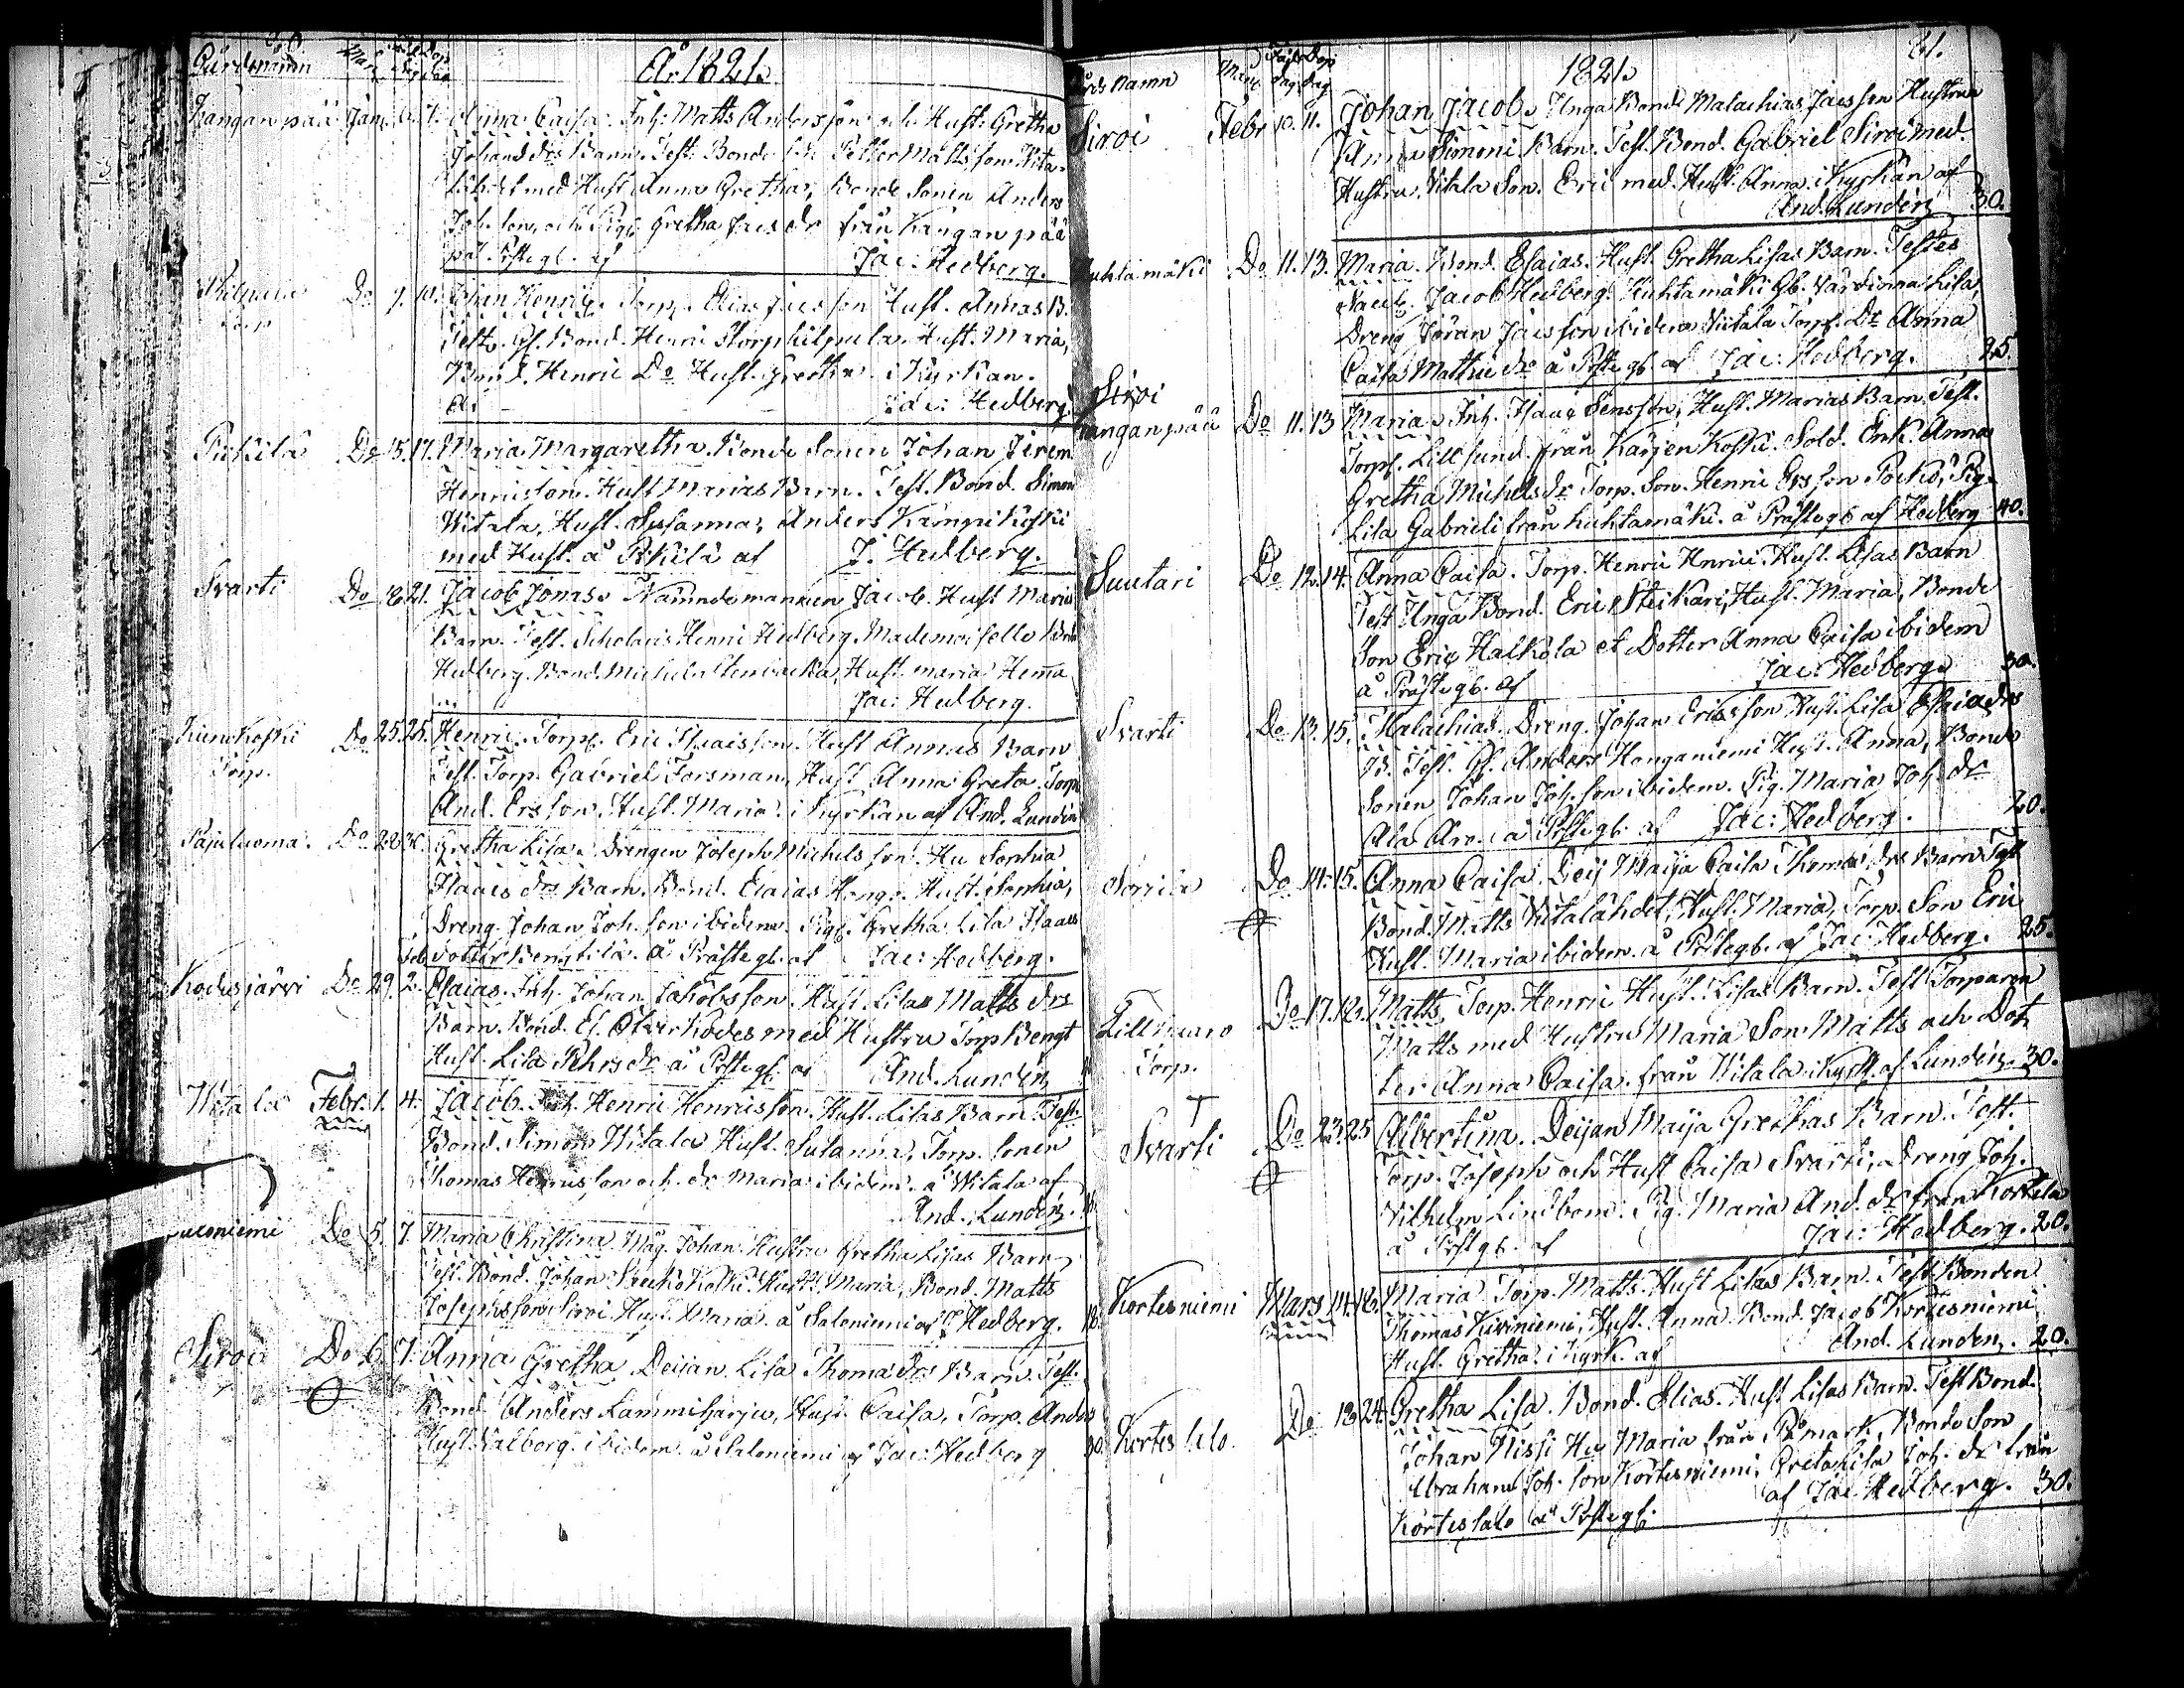 Gårdsnamn
År 1821.
Kangan pää Jan. Anna Caisa. Inh: Matts Andersson och Hust: Gretha
Johans drs Barn. Test: Bonde Petter Mattsson Wita-
lähdet med Hust Anna Gretha, Bonde Sonen Anders
Joh. son, och Pig. Gretha Jacs dr från Kangan pää
på Prstegb. af Jac: Hedberg.
Torp Do 7. 10. Johan Henric. Torp. Elias Jacsson Hust. Annas B.
Test. Bond. Henric Hust. Maria,
Bond. Henric Do Hust. Gretha i Kyrkan.
af Jac: Hedberg.
Pirkilä Do 15. 17. Maria Margaretha. Bonde Sonen Johan Jerem
Henricson. Hust Marias Barn. Test. Bond. Simon
Witala, Hust. Susanna, Anders
med Hust. å Pirkilä af J. Hedberg.
Svarti Do 18. 21. Jacob Jonas. Nämndemannen Jacob. Hust Marias
Barn. Test. Scholaris Henric Hedberg. Mademoiselle
Hedberg. Bond. Michel Stenbacka, Hust. maria Hemma
Jac: Hedberg.
Torp. Do 25. 25. Henric. Torp. Eric Hust Annas Barn
Test. Torp. Gabriel Forsman, Hust Anna Greta. Torp
And. Ersson, Hust. Maria. i Kyrkan af And. Lundén
Pajuluoma. Do 28 30. Gretha Lisa. Drengen Joseph Michelsson. Hu Sophia
Isaacs drs Barn. Bond. Esaias Hust. Sophia,
Dreng. Johan Joh. son ibidem. Pig. Gretha Lisa Isaacs
Feb dotter Bengtilä. å Prästegb. af Jac: Hedberg.
Kodesjärvi Do 29. 2. Esaias. Inh. Johan Jakobsson. Hust. Lisas Matts drs
Barn. Bond. Es. Kodes med Hustru Torp Bengt
Hust. Lisa Pehrs dr å Prstegb af And. Lundén
Witala Febr. 1. 4. Jacob. Inh. Henric Henricsson. Hust. Lisas Barn. Test.
Bond. Simon Witala Hust. Susanna, Torp. sonen
Thomas Henricsson och dr Maria ibidem. å Witala af
And. Lundén.
Do 5. 7. Maria Christina. Mag. Johan. Hustru Gretha Lisas Barn
Test. Bond. Johan Hust Maria, Bond. Matts
Josephsson Siroi. Hust. Maria. å Saloniemi af J Hedberg.
Siroi Do 6. 7. Anna Gretha Deijan Lisa Thomæ drs Barn. Test.
Bond. Anders Lammiharju, Hust. Caisa, Torp. Anders
Hust. Valborg. ibidem. å Saloniemi af Jac: Hedberg 30.
Gårds Namn
1821.
61.
Siroi Febr 10. 11. Johan Jacob. Unga Bond. Malachias Jacsson Hustru
Anna Simoni Barn. Test. Bond. Gabriel Siroi med
Hustru. Vitala Son. Eric med Hust. Anna i kyrkan af
And. Lundén. 30.
Luhtamäki Do 11. 13. Maria. Bond. Esaias. Hust. Gretha Lisas Barn. Testes
Jacob Hedberg. Luhtamäki Gb. Värdinna Lisa,
Dreng Jöran Jacsson ibidem Viitala Torp. Dr Anna
Caisa Matthiæ dr å Prstegb af Jac: Hedberg. 25
Siroi
Kangan pää Do 11. 13 Maria. Inh. Isaac Sensson, Hust. Marias Barn. Test.
Torp. Lillsund. från Karjen Koski. Sold. Enk. Anna
Gretha Michels dr Torp. Son. Henric Ersson Pig.
Lisa Gabrieli från Luhtamäki. å Prästegb af Hedberg 40.
Suutari Do 12. 14. Anna Caisa. Torp. Henric Henric. Hust. Lisas Barn
Test Unga Bond. Eric Steikari, Hust. Maria, Bonde
Son Eric Halkola et Dotter Anna Caisa ibidem
å Prästegb. af Jac: Hedberg. 30.
Svarti Do 13. 15. Malachias. Dreng. Johan Ericsson Hust. Lisa Esaiædrs
B. Test. Gf. Anders Honganiemi Hust. Anna, Bonde
Sonen Johan Joh. son ibidem. Pig. Maria Joh. dr
Ala Aro. å Prstegb. af Jac: Hedberg. 20.
Sorsila Do 14. 15. Anna Caisa. Deij Maija Caisa Thomæ drs Barn Test
Bond. Matts Viitalähdet, Hust. Maria, Torp. Son Eric
Hust. Maria ibidem. å Prstegb. af Jac: Hedberg. 25.
Lill
Torp. Do 17. 18. Matts. Torp. Henric Hust. Lisas Barn. Test Torparen
Matts med Hustru Maria Son Matts och Dot
ter Anna Caisa. från Witala. i Kyrk. af Lundén. 30.
Svarti Do 23. 25 Albertina. Deijan Maija Grethas Barn. Test.
Torp. Joseph och Hust Caisa Svarti, Dreng Joh.
Vilhelm Lindbom. Pig. Maria And. dr från Kortela
å Prstgb. af Jac: Hedberg. 20.
Kortesniemi Mars 14. 18. Maria Torp. Matts. Hust Lisas Barn. Test. Bonden
Thomas Kiviniemi, Hust. Anna Bond. Jacob Kortesniemi
Hust. Gretha. i kyrk. af And. Lundén. 20.
Kortesalo Do 18 24. Gretha Lisa. Bond. Elias. Hust Lisas Barn. Test Bond.
Johan Nissi Hu Maria från Påmark, Bonde Son
Abraham Joh. son Kortesniemi, Greta Lisa Joh. dr från
Kortesalo å Prstegb. af Jac. Hedberg. 30.